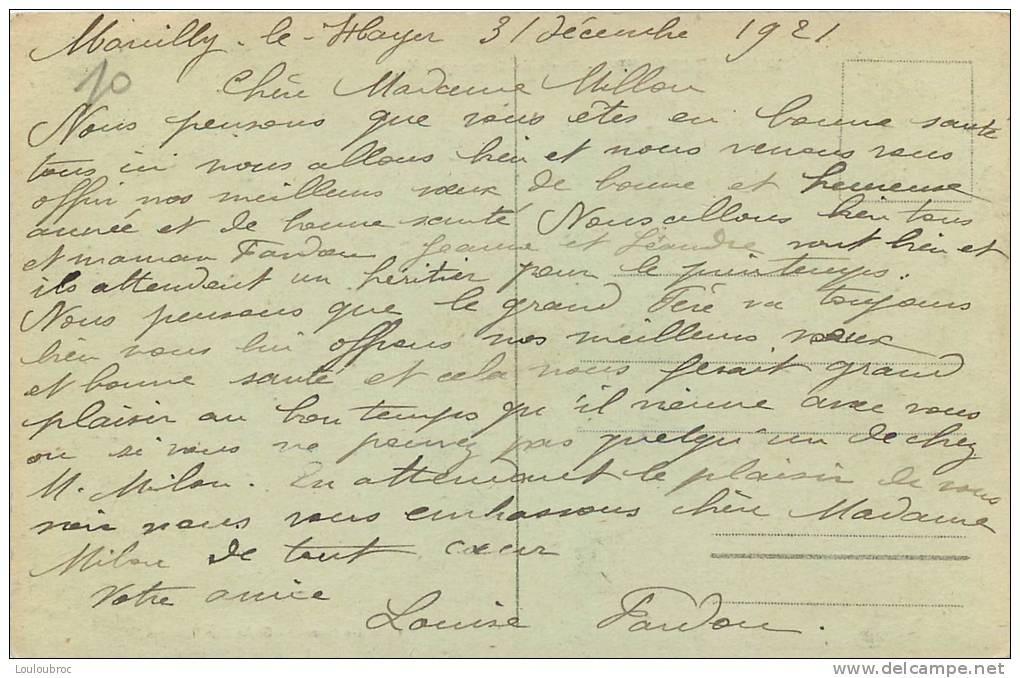 Marcilly-le-Hayer 31 décembre 1921
10
Chère Madame Millon
Nous pensons que vous êtes en bonne santé
tous ici nous allons bien et nous venons vous
offrir nos meilleurs vœux de bonne et heureuse
année et de bonne santé Nous allons bien tous
et maman Fardou Jeanne et Léandre vont bien et
ils attendent un héritier pour le printemps.
Nous pensons que le grand Péré va toujours
bien nous lui offrons nos meilleurs vœux
et bonne santé et cela nous ferait grand
plaisir au bon temps qu'il vienne avec vous
ou si vous ne pouvez pas quelqu'un de chez
M. Milon. En attendant le plaisir de vous
voir nous vous embrassons chère Madame
Milon de tout cœur
Votre amie
Louise Fardou.
Louloubroc
www.delcampe.net